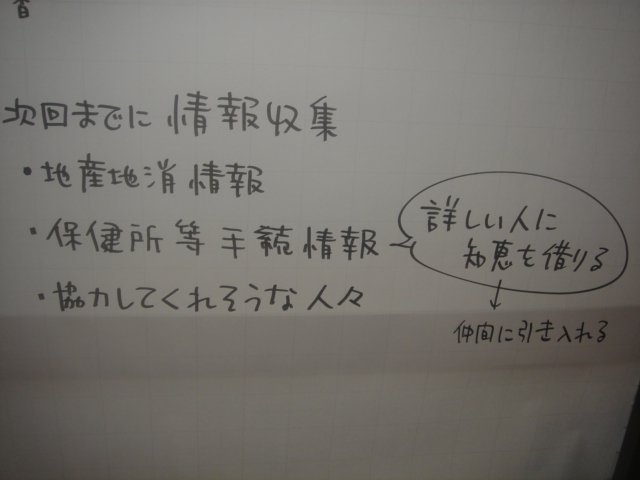 次回までに 情報収集
・地産地消情報
・保健所等手続情報
詳しい人に
知恵を借りる
↓
仲間に引き入れる
・協力してくれそうな人々